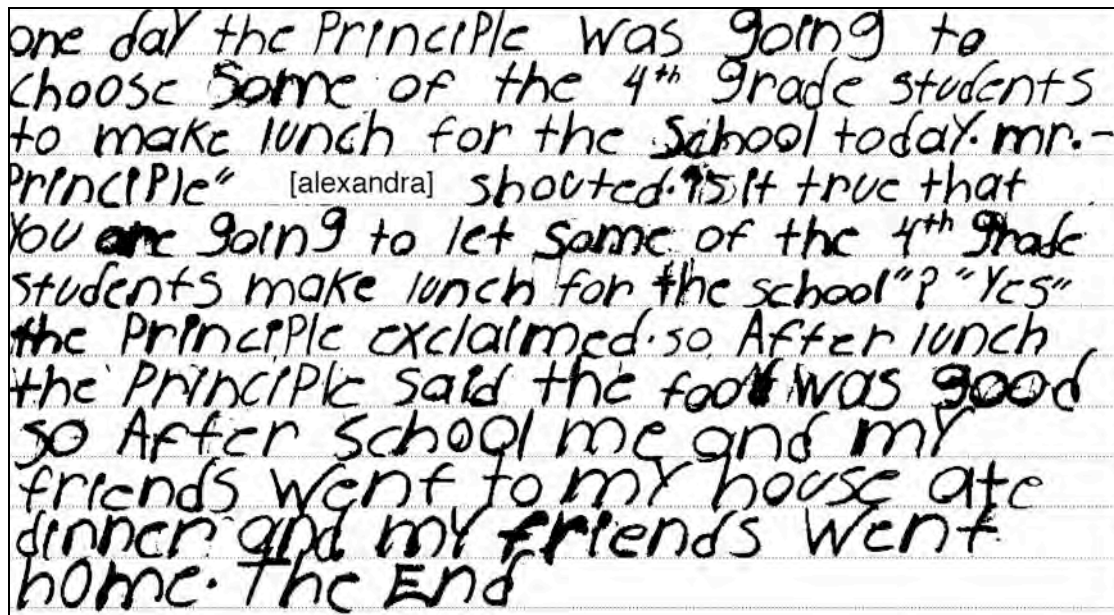 one day the Principle was going to
choose some of the 4th grade students
to make lunch for the School today. mr.-
Principle" [alexandra] shouted. "is it true that
You are going to let some of the 4th grade
students make lunch for the school"? "Yes"
the Principle exclaimed. so After lunch
the Principle said the food was good
so After School me and my
friends went to my house ate
dinner and my friends went
home. The End